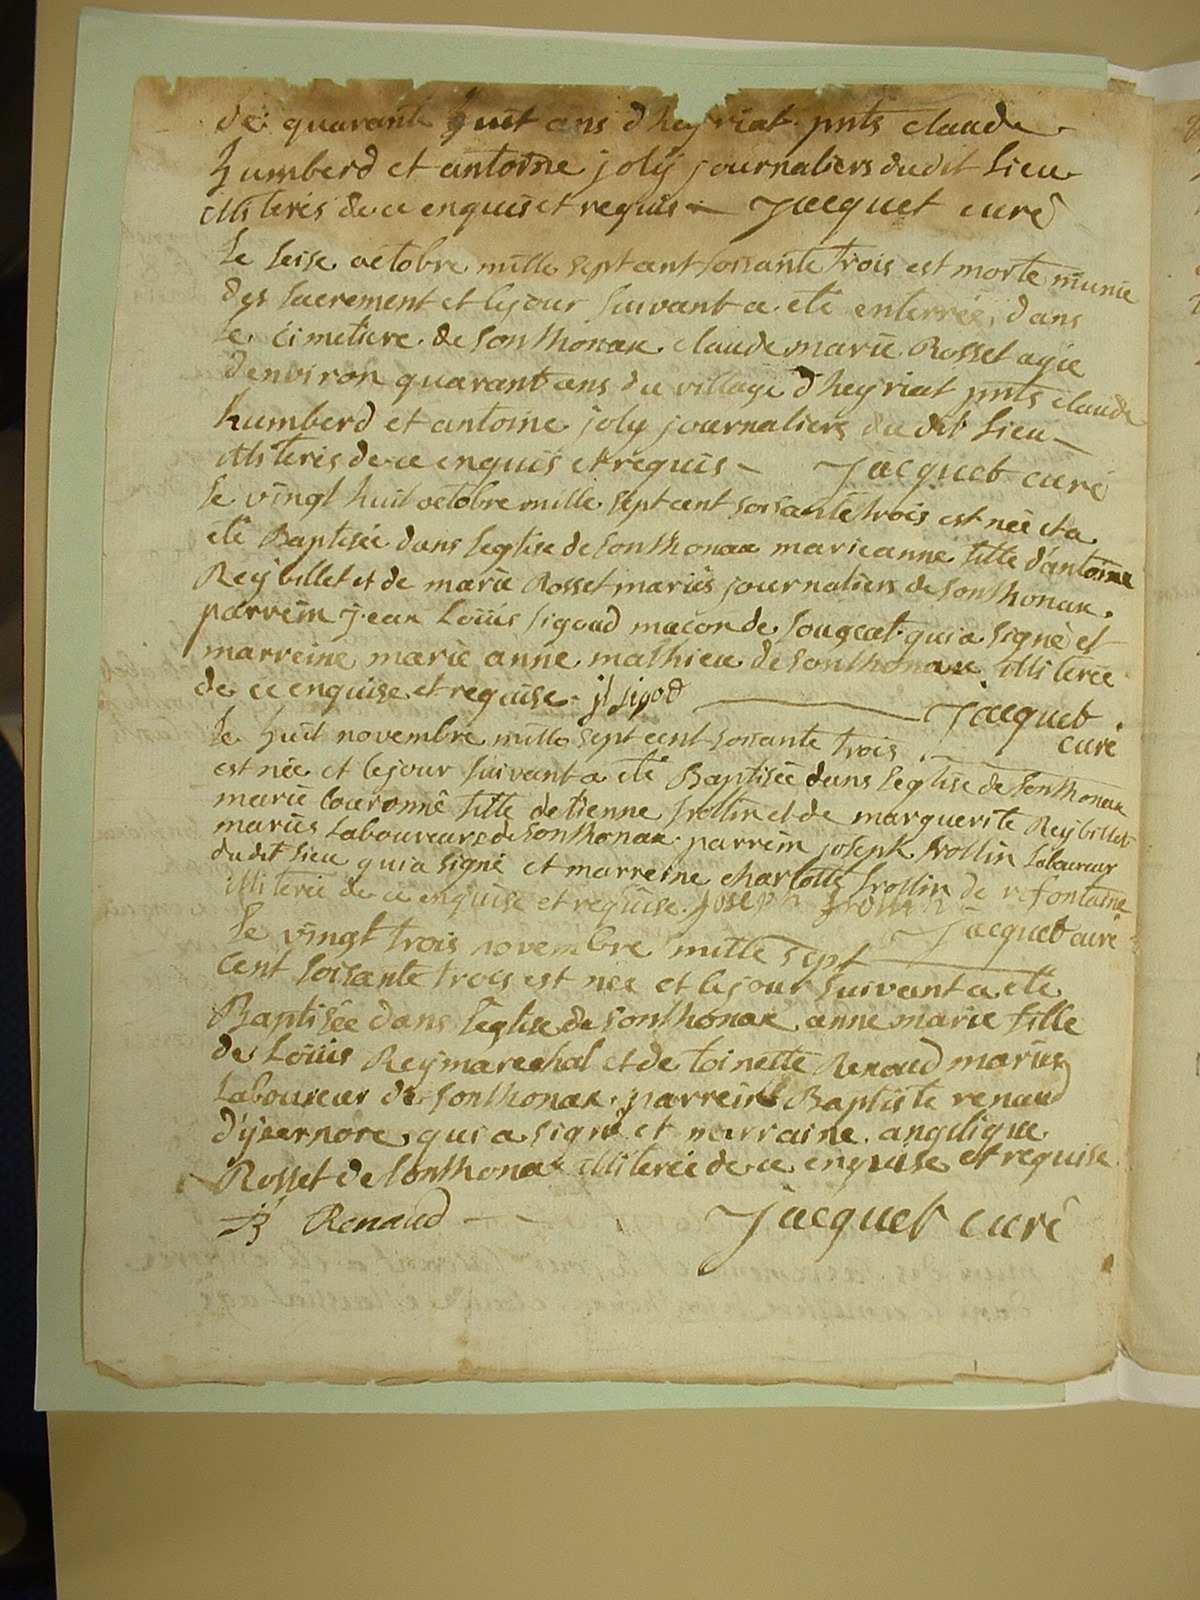 de quarante huit ans d'heyriat pnts claude
humberd et antoine joly journaliers dudit lieu
illiteres de ce enquis et requis - Jacquet curé
le seise octobre mille sept cent soisante trois est morte munie
des sacrement et le jour suivant a eté enterrée dans
le cimetiere de sonthonax claude marie Rosset agée
denviron quarante ans du village d'heyriat pnts claude
humberd et antoine joly journaliers du dit lieu -
illiteris de ce enquis et requis - Jacquet curé
le vingt huit octobre mille sept cent soisante trois est née et a
eté Baptisée dans leglise de sonthonax marie anne fille d'antoine
Reybillet et de marie Rosset mariés journaliers de sonthonax.
parrein jean Loüis sigoud macon de sougeat qui a signé et
marreine marie anne mathieu de sonthonax illiterée
de ce enquise et requise. jl sigod Jacquet
curé
le huit novembre mille sept cent soisante trois
est née et le jour suivant a eté Baptisée dans leglise de sonthonax
marie couronne fille detienne frollin et de marguerite Reybillet
mariés laboureurs de sonthonax. parrein joseph frollin laboureur
dudit lieu qui a signé et marreine charlotte frollin de
illiterée de ce enquise et requise. joseph frollin Jacquet curé
le vingt trois novembre mille sept
cent soisante trois est née et le jour suivant a eté
Baptisée dans leglise de sonthonax anne marie fille
de Loüis Reymarechal et de toinette Renaud mariés
laboureur de sonthonax. parrein Baptiste renaud
d'ysernore qui a signé et marraine angelique
Rosset de sonthonax illiterée de ce enquise et requise
JB Renaud - - Jacquet curé